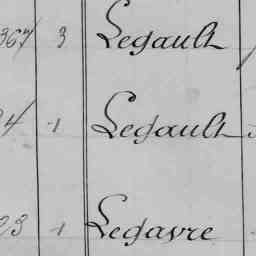 367 3 Legault
24 1 Legault
23 1 Legavre